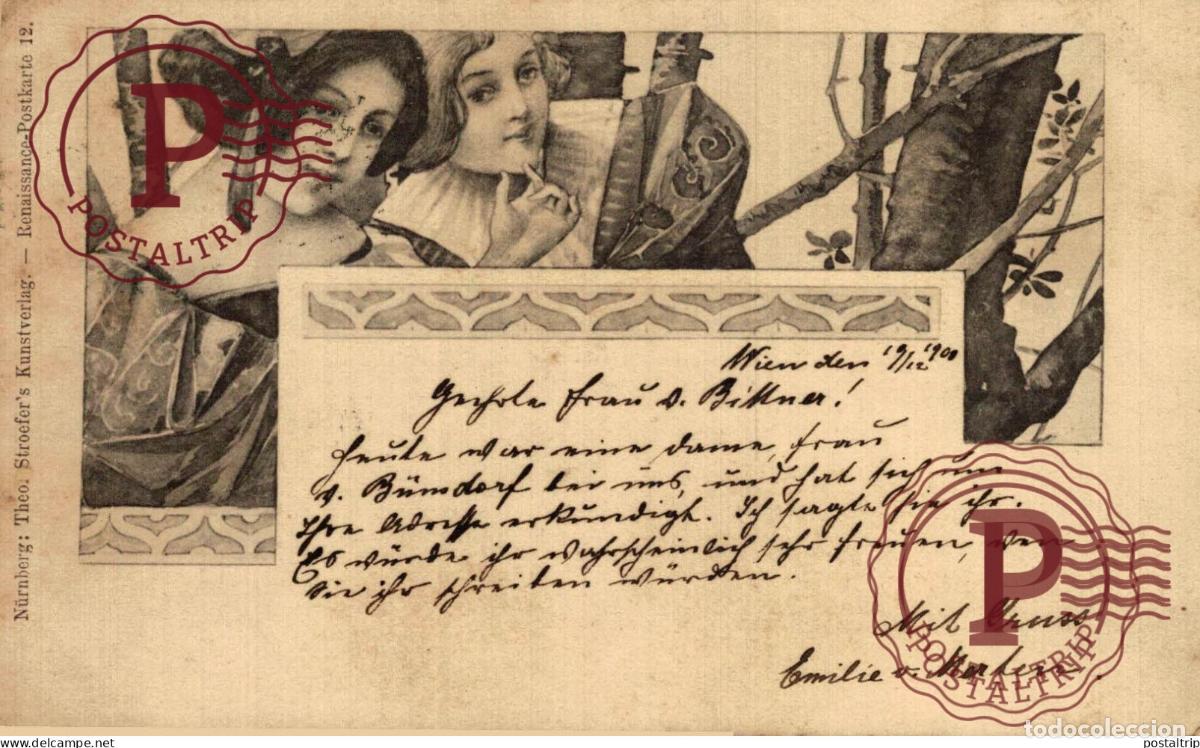 Nürnberg: Theo. Stroefer's Kunstverlag. — Renaissance-Postkarte 12.
P
POSTALTRIP
Wien den 19/12 1900
Geehrte Frau v. Bittner!
Heute war eine Dame, Frau
v. Bümdorf bei uns, und hat sich um
Ihre Adresse erkundigt. Ich sagte sie ihr.
Es würde ihr wahrscheinlich sehr freuen, wen
Sie ihr schreiben würden.
Mit Gruss
Emilie v.
P
POSTALTRIP
todocoleccion
www.delcampe.net
postaltrip